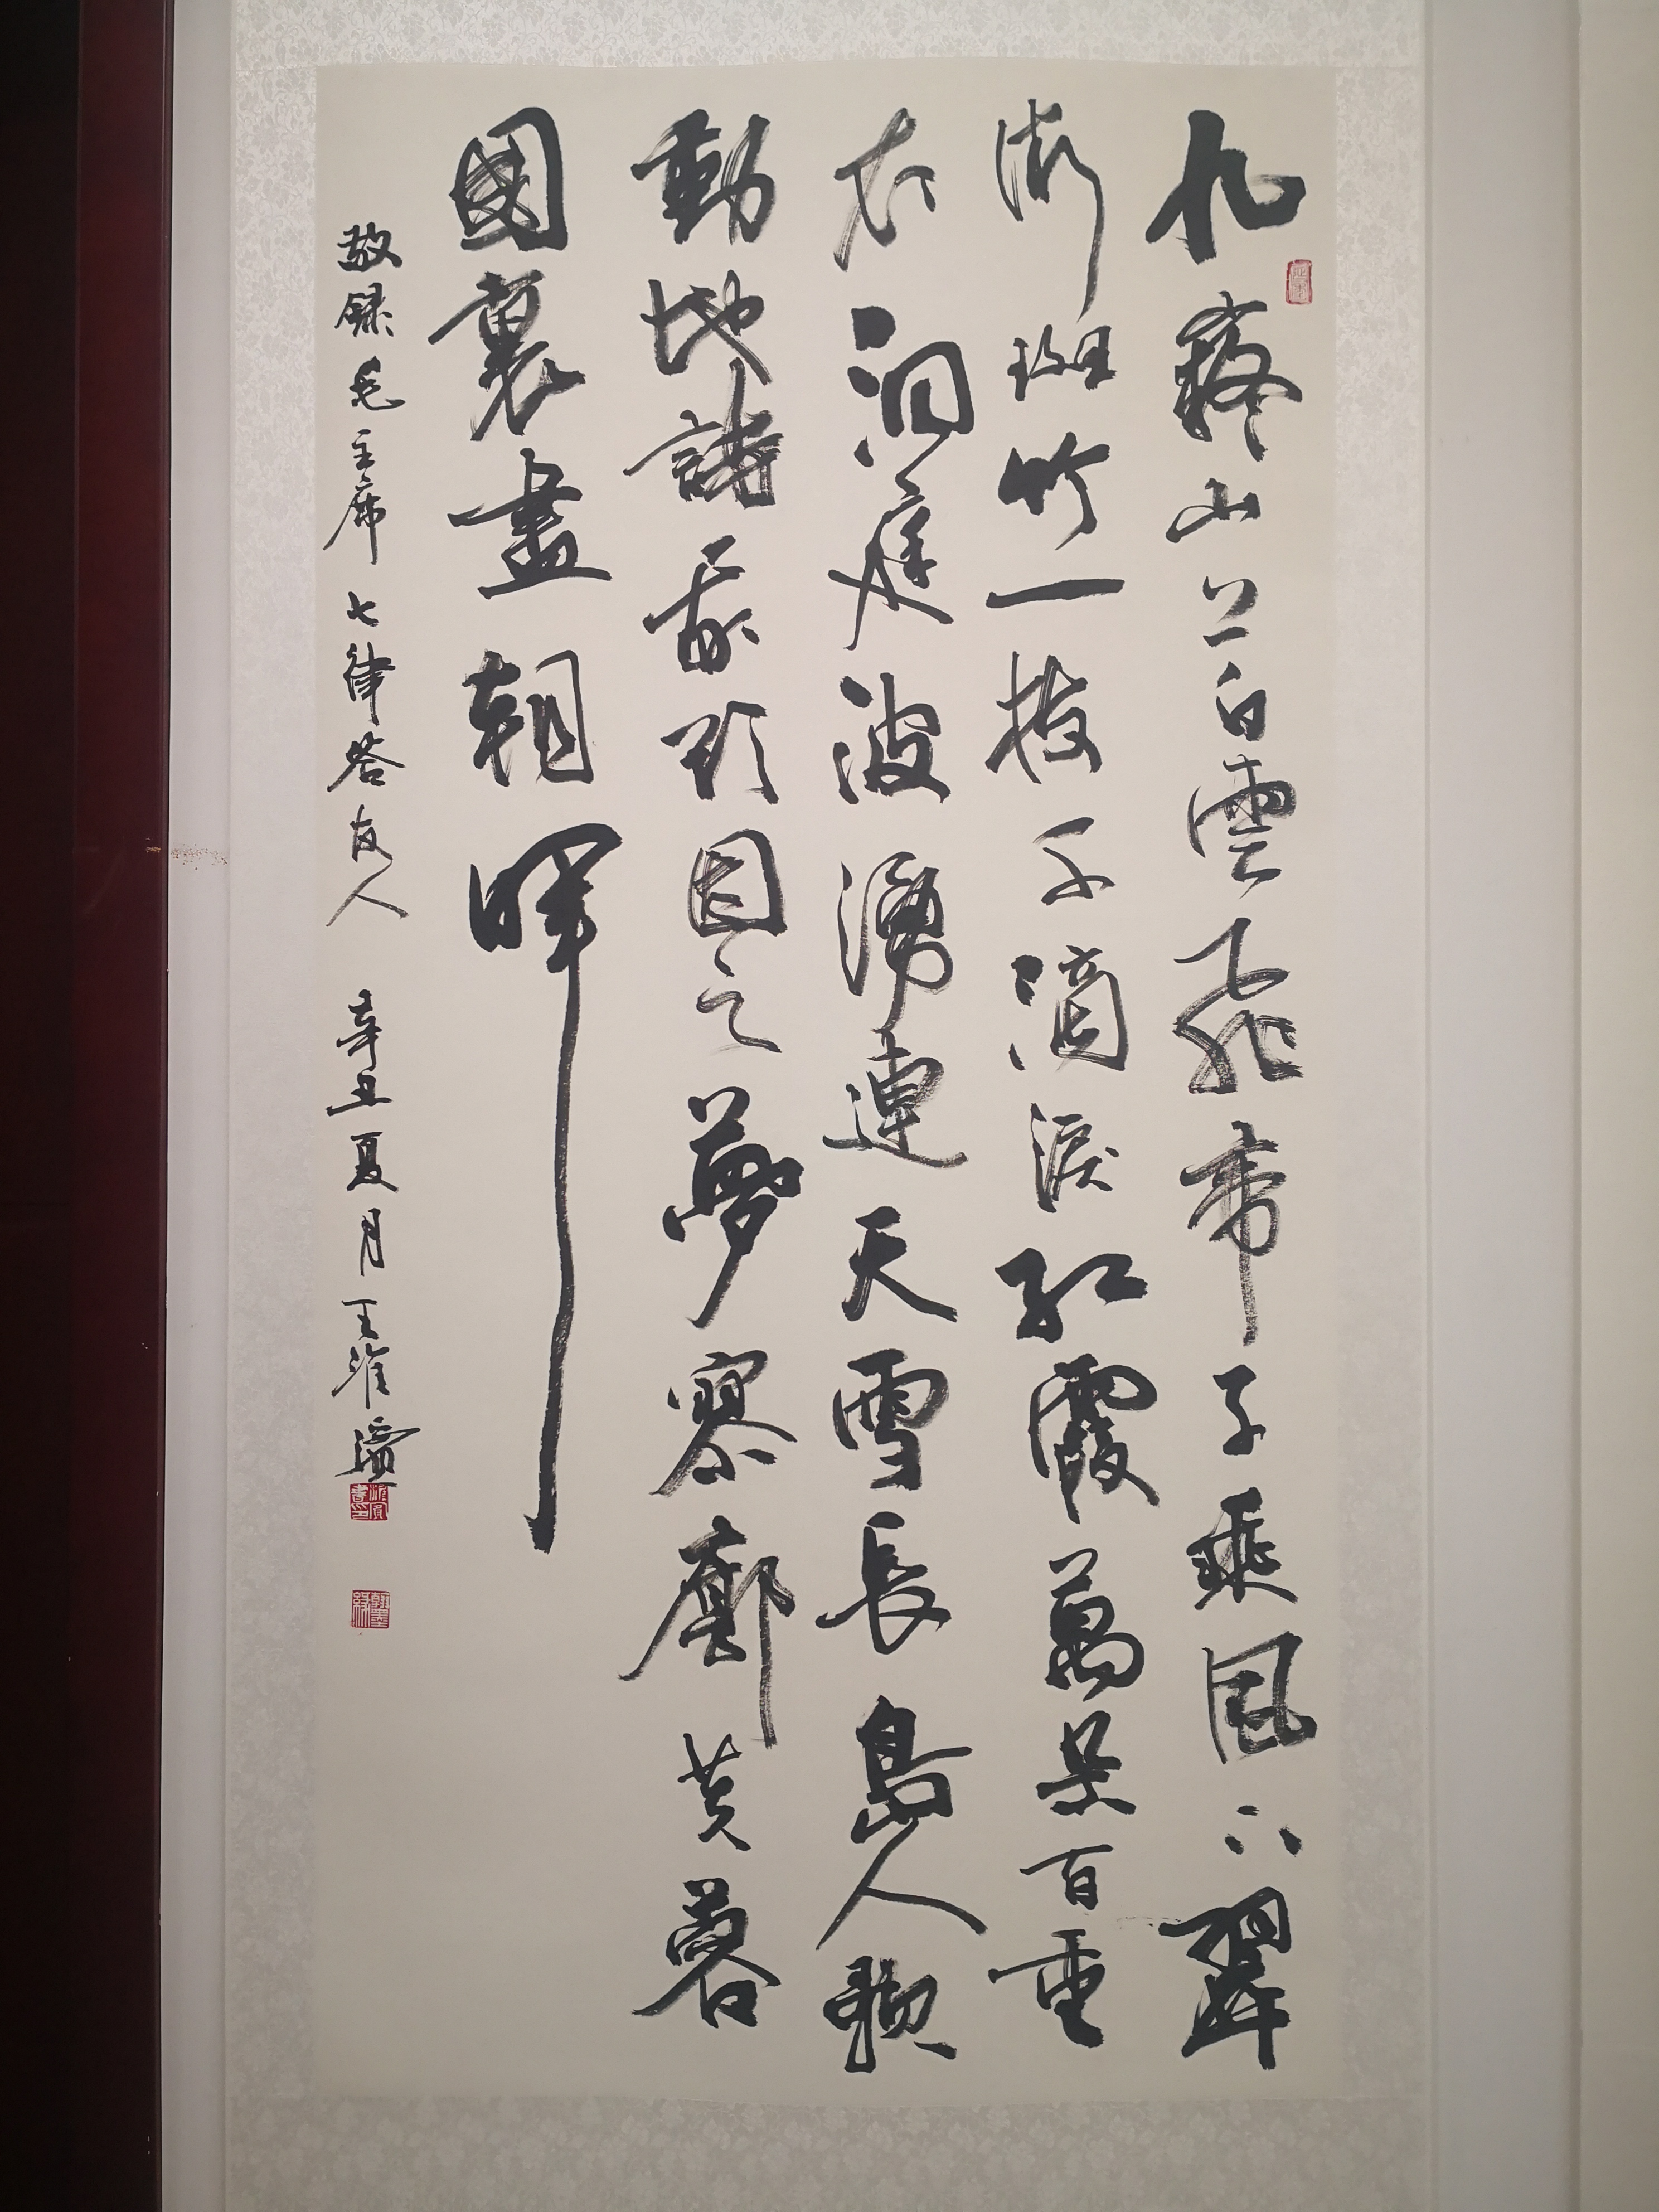 九疑山上白雲飛帝子乘風下翠
微斑竹一枝千滴淚紅霞萬朵百重
衣洞庭波湧連天雪長島人歌
動地詩我欲因之夢寥廓芙蓉
國裏盡朝暉
敬錄毛主席七律答友人 辛丑夏月王